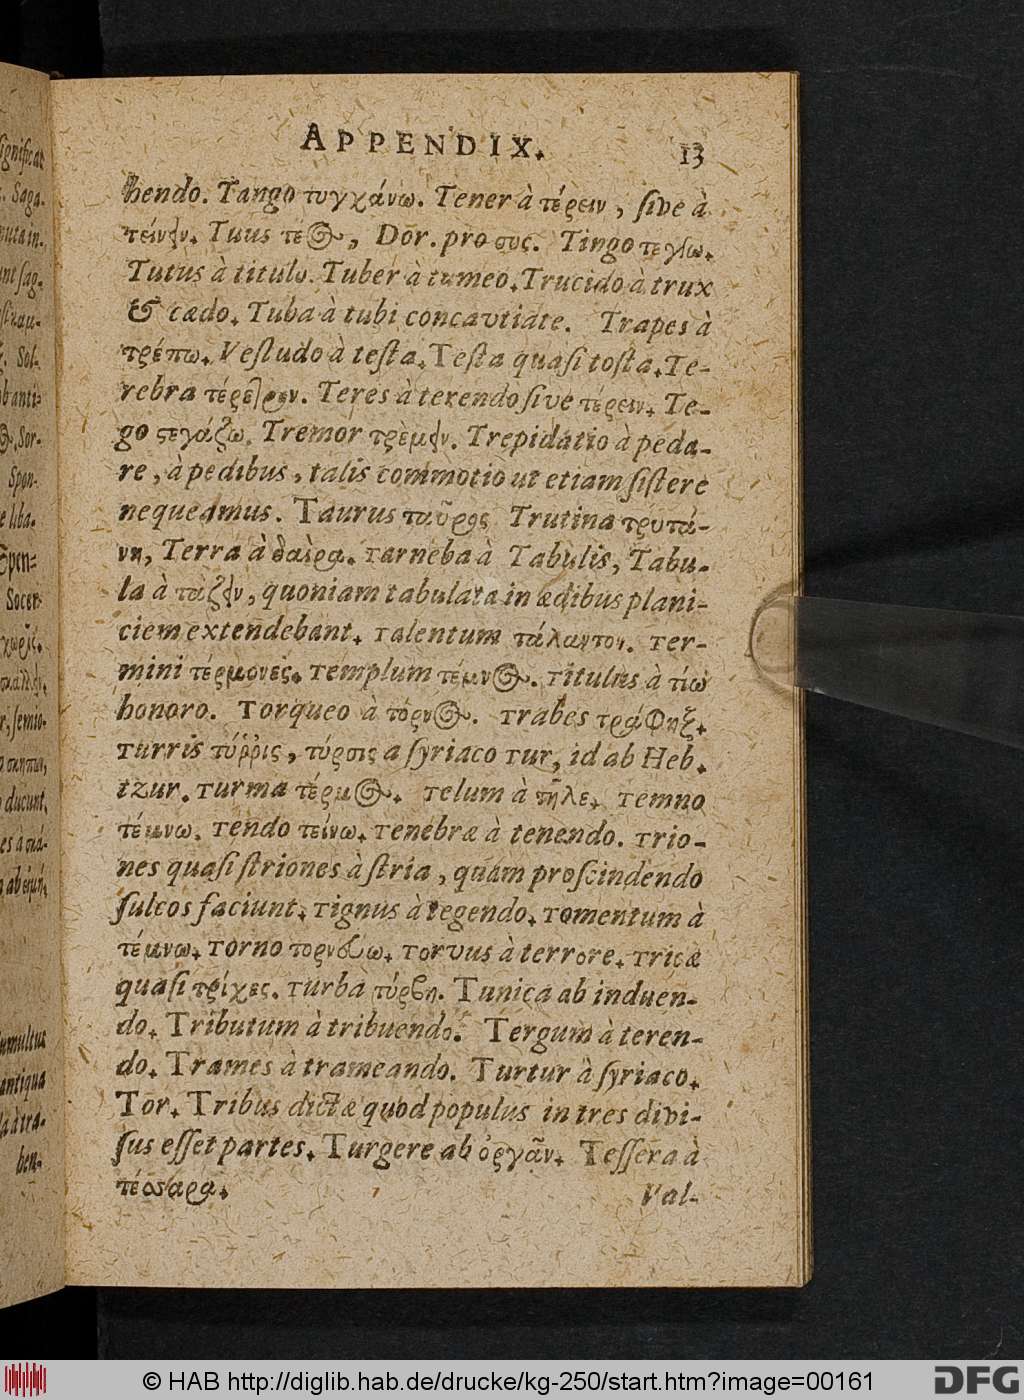 APPENDIX. 13
hendo. Tango τυγχάνω. Tener à τέρειν, sive à
τείνειν. Tuus τεος, Dor. pro συς. Tingo τεγίω.
Tutus à titulo. Tuber à tumeo. Trucido à trux
& cædo. Tuba à tubi concavtiate. Trapes à
τρέπω. Vestudo à testa. Testa quasi tosta. Te-
rebra τέρετρον. Teres à terendo sive τέρειν. Te-
go ςεγάζω. Tremor τρὲμειν. Trepidatio à peda-
re, à pedibus, talis commotio ut etiam sistere
nequeamus. Taurus ταῦρος Trutina τρυτά-
νη, Terra à θαὶρα. Tarneba à Tabulis, Tabu-
la à τὰζειν, quoniam tabulata in ædibus plani-
ciem extendebant. Talentum τάλαντον. Ter-
mini τέρμονες. Templum τέμνος. Titulus à τίω
honoro. Torqueo à τόρνος. Trabes τράφηξ.
Turris τύῤῥις, τύρσις a syriaco Tur, id ab Heb.
tzur. Turma τέρμος. Telum à τῆλε. Temno
τέμνω. Tendo τείνω. Tenebræ à tenendo. Trio-
nes quasi striones à stria, quam proscindendo
sulcos faciunt. Tignus à tegendo. Tomentum à
τέμνω. Torno τορνεύω. Torvus à terrore. Tricæ
quasi τρίχες. Turba τύρβη. Tunica ab induen-
do. Tributum à tribuendo. Tergum à teren-
do. Trames à trameando. Turtur à syriaco.
Tor. Tribus dictæ quod populus in tres divi-
sus esset partes. Turgere ab ὀργᾶν. Tessera à
τέσσαρα.
Val-
significat
Saga-
Sol-
Sor-
Spon-
Spen-
Socer
ducunt,
tumultus
antiqua
ben-
© HAB http://diglib.hab.de/drucke/kg-250/start.htm?image=00161
DFG